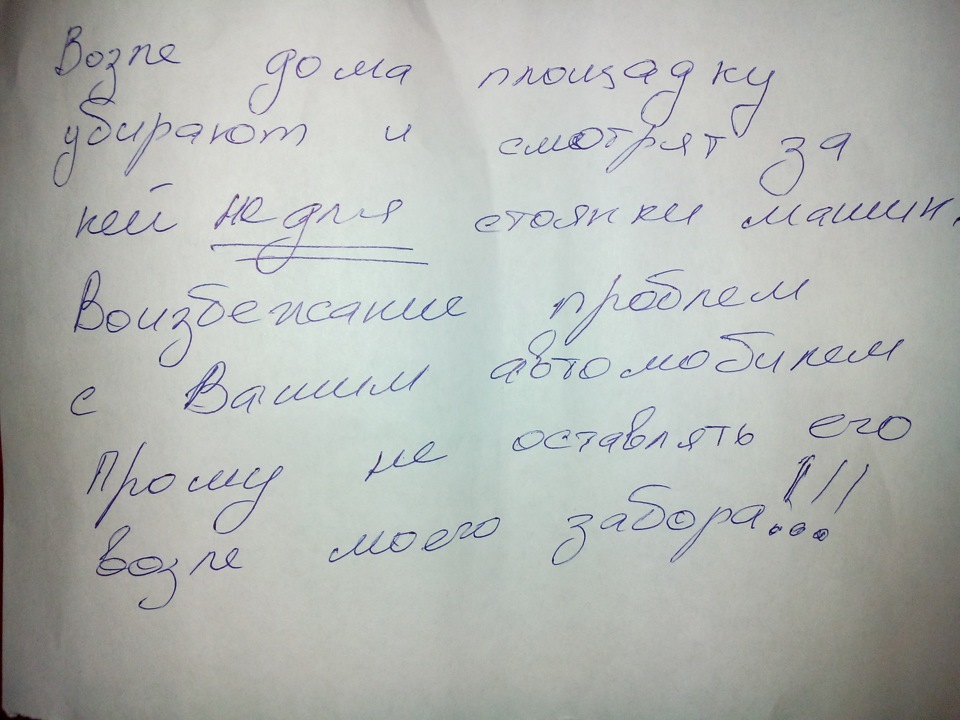 Возле дома площадку
убирают и смотрят за
ней не для стоянки машин.
Воизбежание проблем
с Вашим автомобилем
Прошу не оставлять его
возле моего забора!!!